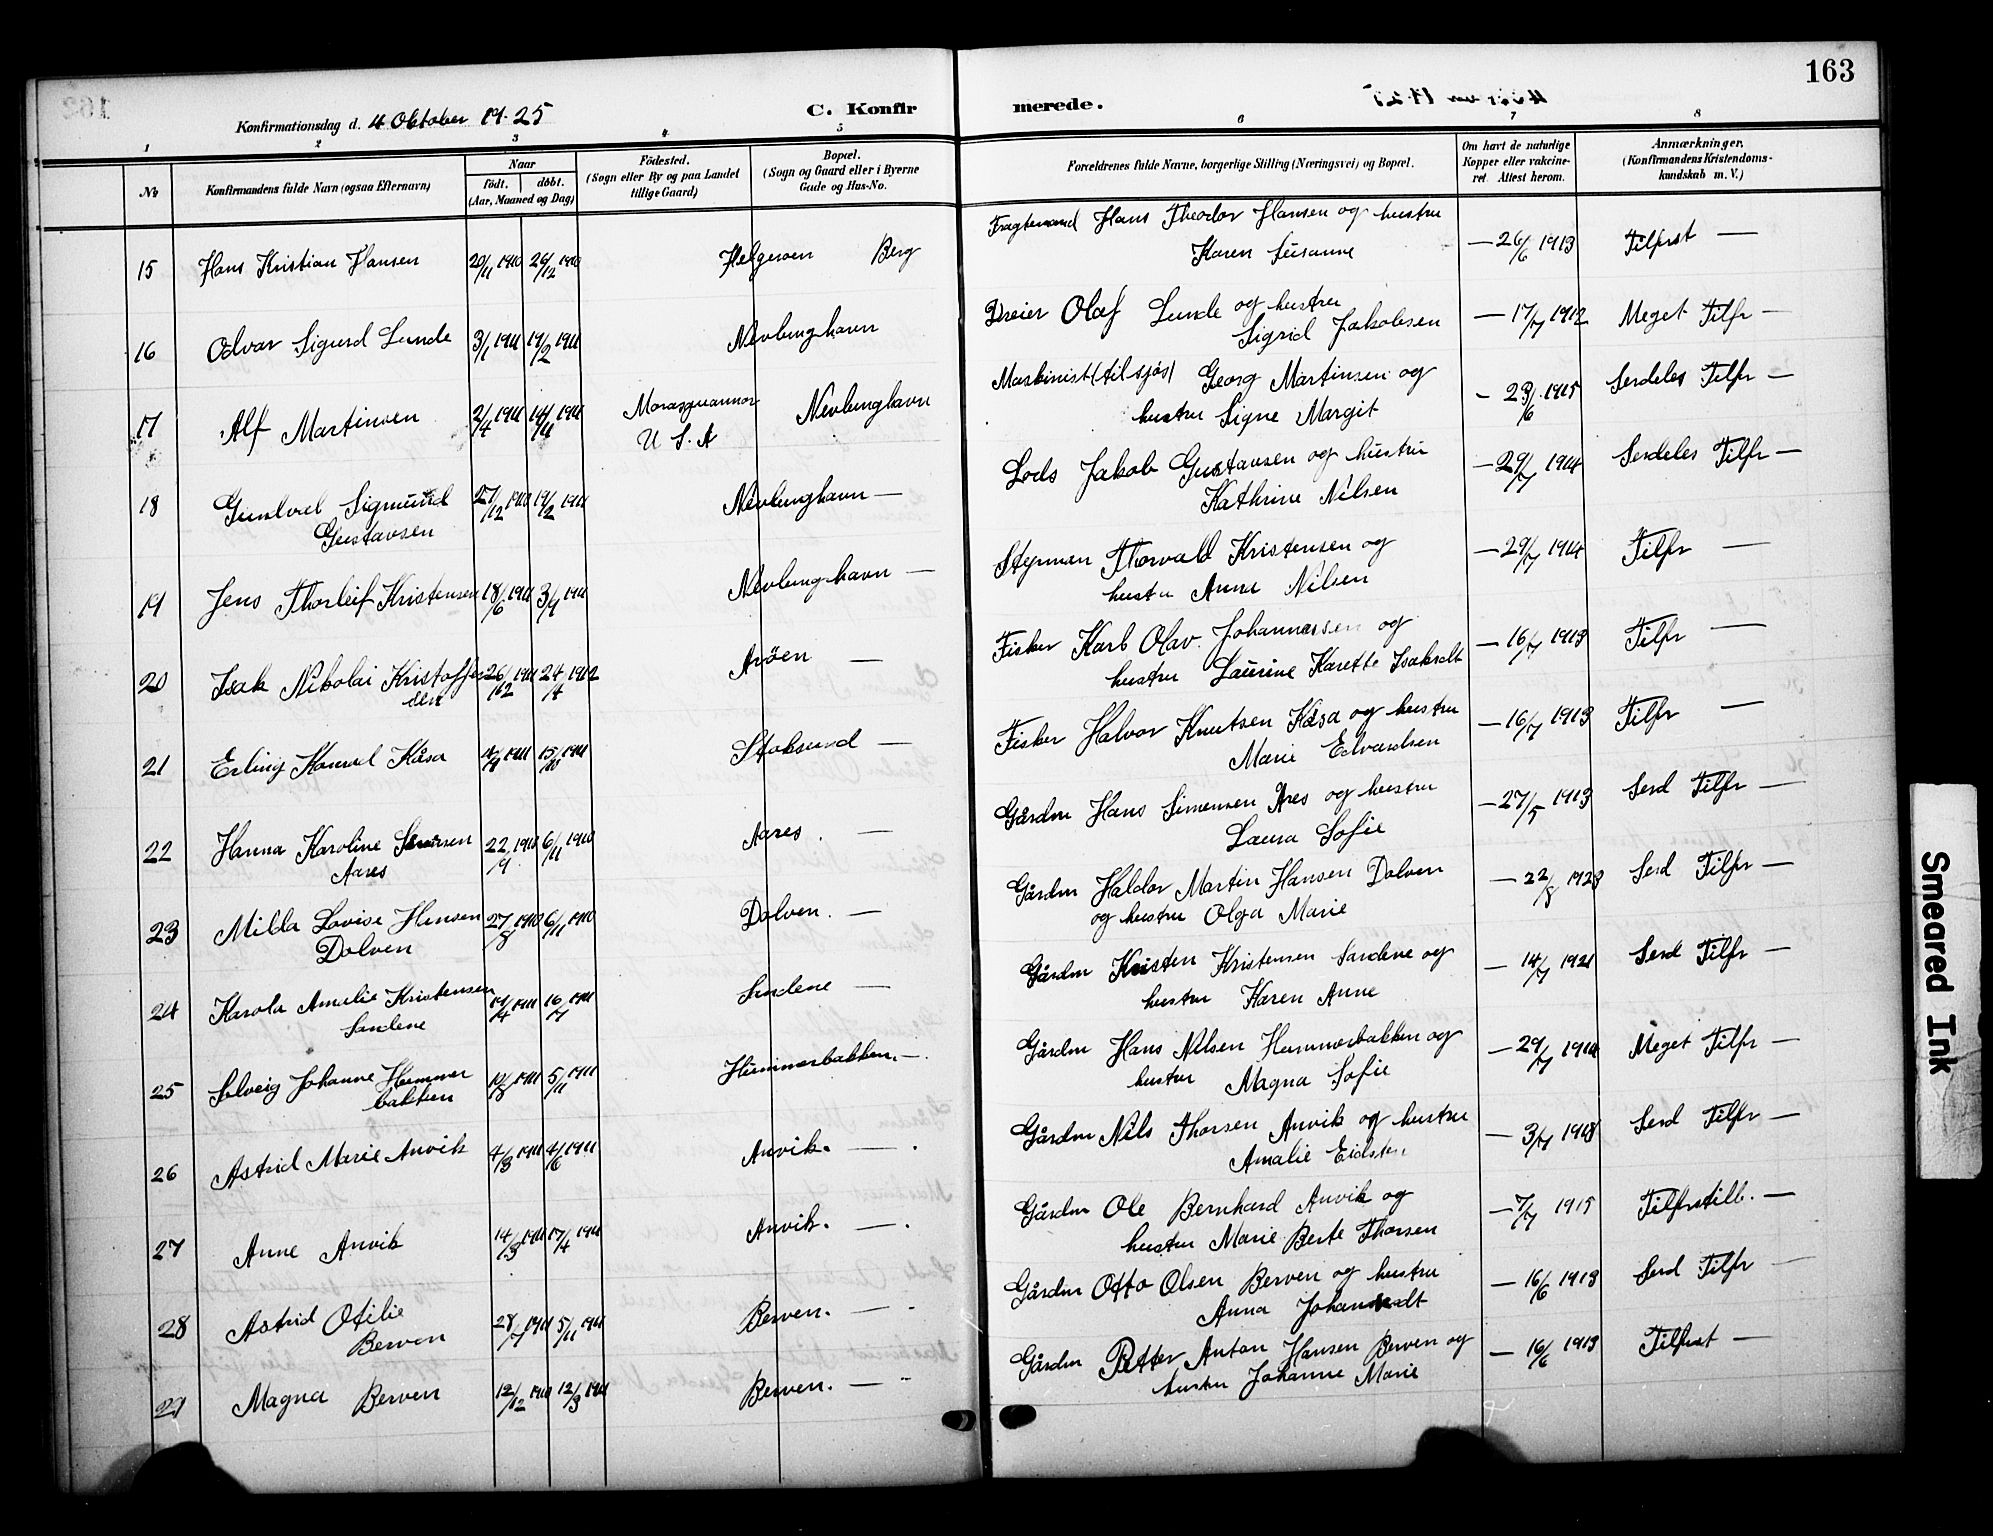 163
Konfirmationsdag d. 4 Oktober 1925
C. Konfir
merede.
1 2 3 4 5 6 7 8
No
Konfirmandens fulde Navn (ogsaa Efternavn)
Naar
födt. döbt.
(Aar, Maaned og Dag)
Födested.
(Sogn eller By og paa Landet
tillige Gaard)
Bopæl.
(Sogn og Gaard eller i Byerne
Gade og Hus-No.
Forældrenes fulde Navne, borgerlige Stilling (Næringsvei) og Bopæl.
Om havt de naturlige
Kopper eller vakcine-
ret. Attest herom.
Anmærkninger.
(Konfirmandens Kristendoms-
kundskab m. V.)
15 Hans Kristian Hansen 20/11 1910 26/12 1910 Helgeroen Berg Fragtemand Hans Theodor Hansen og hustru
Karen Susanne — 26/6 1913 Tilfrst —
16 Odvar Sigurd Lunde 3/1 1911 19/2 1911 Nevlunghavn Dreier Olaf Lunde og hustru
Sigrid Jakobsen — 17/7 1912 Meget Tilfr —
17 Alf Martinsen 2/4 1911 U S. A Nevlunghavn Maskinist (til sjøs) Georg Martinsen og
hustru Signe Margit - 23/6 1915 Serdeles Tilfr —
18 Gundval Sigmund
Gustavsen 27/12 1910 19/2 1911 Nevlunghavn — Lods Jakob Gustavsen og hustru
Kathrine Nilsen — 29/7 1914 Serdeles Tilfr —
19 Jens Thorleif Kristensen 18/6 1911 3/9 1911 Nevlunghavn — Styrman Thorvald Kristensen og
hustru Anna Nilsen — 29/7 1914 Tilfr —
20 Isak Nikolai Kristoffer
sen 26/12 1911 24/4 1912 Arøen — Fisker Karl Olav Johannessen og
hustru Laurine Karette Isaksdt — 16/7 1913 Tilfr —
21 Erling Konrad Kåsa 4/9 1911 15/10 1911 Stoksund — Fisker Halvor Knutsen Kåsa og hustru
Marie Edvardsen — 16/7 1913 Tilfr —
22 Hanna Karoline Simensen
Aares 22/9 1910 6/11 1910 Aares. — Gårdm Hans Simensen Ares og hustru
Laura Sofie — 27/5 1913 Serd Tilfr —
23 Milda Lovise Hansen
Dolven 27/8 1910 6/11 1910 Dolven. — Gårdm Haldor Martin Hansen Dolven
og hustru Olga Marie — 22/8 1923 Serd Tilfr —
24 Karola Amalie Kristensen
Sandene 19/4 1911 16/7 1911 Sandene — Gårdm Kristen Kristensen Sandene og
hustru Karen Anne — 14/7 1921 Serd Tilfr —
25 Solveig Johanne Hummer
bakken 10/8 1911 5/11 1911 Hummerbakken. — Gårdm Hans Nilsen Hummerbakken og
hustru Magna Sofie — 29/7 1914 Meget Tilfr —
26 Astrid Marie Anvik 4/3 1911 4/6 1911 Anvik. — Gårdm Nils Thorsen Anvik og hustru
Amalie — 3/7 1918 Serd Tilfr —
27 Anne Anvik 14/3 1911 17/4 1911 Anvik. — . Gårdm Ole Bernhard Anvik og
hustru Marie Berte Thorsen — 7/7 1915 Tilfrstill. —
28 Astrid Otilie
Berven 28/7 1911 5/11 1911 Berven. — Gårdm Otto Olsen Berven og hustru
Anna Johansdt — 16/6 1913 Serd Tilfr —
29 Magna Berven 12/12 1910 12/3 1911 Berven. — Gårdm Petter Anton Hansen Berven og
hustru Johanne Marie — 16/6 1913 Tilfrst —
Smeared Ink